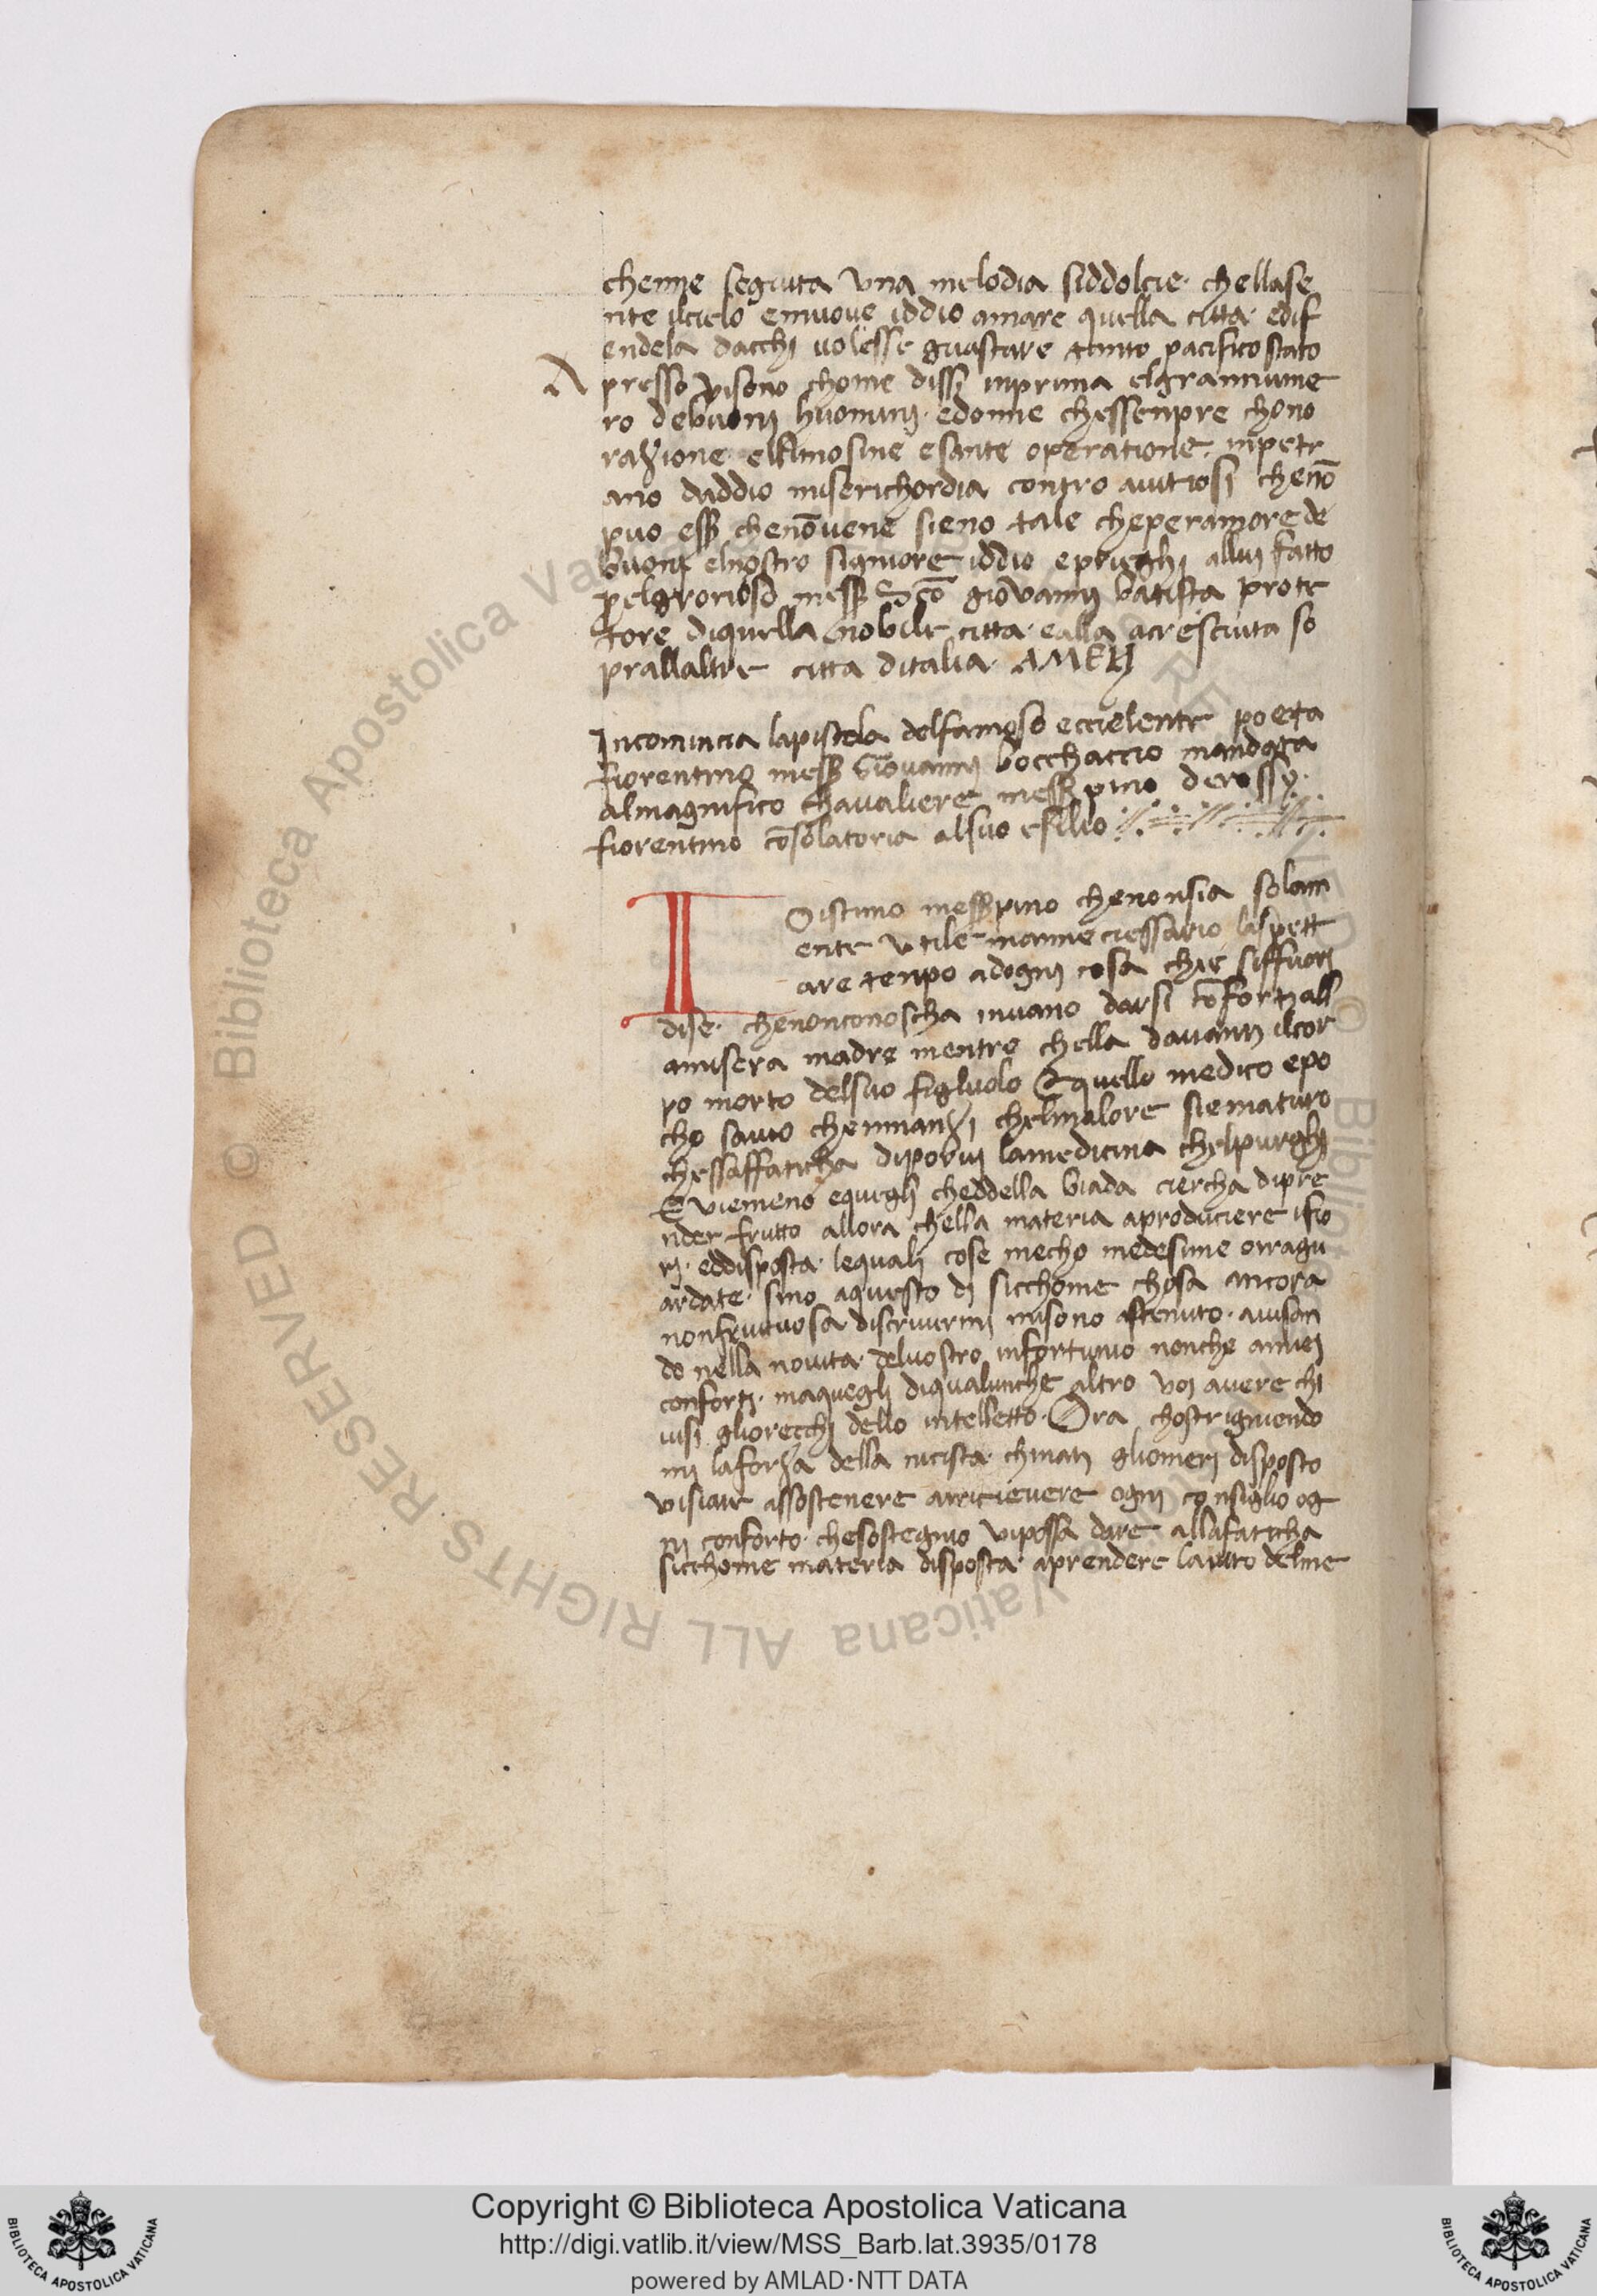 chenne seguita una melodia siddolcie· chellase
nte ilcielo emuove iddio amare quella citta· edif
endela dacchi volesse guastare tanto pacifico stato
A presso visono chome dissi inprima elgrannume
ro debuoni huomini· edonne chessenpre chono
razione elimosine esante operatione inpetr
ano daddio miserichordia contro aviziosi chenō
puo esß chenōvene sieno tale cheperamore de
buoni elnostro signiore iddio eprieghi allui fatto
pelgrorioso messß Sc̄o giovanni batista prote
tore diquella nobile citta· ealla acresciuta so
prallaltre citta ditalia· AMEN
Incomincia lapistola delfamoso eccielente poeta
fiorentino messß Giovanni bocchaccio mandata
almagnifico chavaliere messß pino derossy·
fiorentino cōsolatoria alsuo esilio
I Oistimo messßpino chenonsia solam
ente utile manneciessario laspett
are tenpo adogni cosa chie siffuori
dise· chenonconoscha invano darsi cōforti all
amisera madre mentre chella davanti ilcor
po morto delsuo figluolo Equello medico epo
cho savio chennanzi chelmalore sie maturo
chessaffaticha diporvi lamedicina chelpurghi
E viemeno equegli cheddella biada ciercha dipre
nder frutto allora chella materia aproduciere ifio
ri· eddisposta· lequali cose mecho medesime orragu
ardate· sino aquesto di sicchome chosa ancora
nonfruttuosa discrivermi misono astenuto· avisan
do nella novita· delvostro infortunio nonche amiei
conforti· maquegli diqualunche altro voi avere chi
usi gliorecchi dello intelletto· Ora chostrigniendo
mi laforza della nicista· chinati gliomeri disposto
visiate assostenere arricievere ogni consiglio og
ni conforto· chesostegnio vipossa dare allafaticha
sicchome materia disposta· aprendere laiuto delme
Copyright © Biblioteca Apostolica Vaticana
http://digi.vatlib.it/view/MSS_Barb.lat.3935/0178
powered by AMLAD·NTT DATA
BIBLIOTECA APOSTOLICA VATICANA
BIBLIOTECA APOSTOLICA VATICANA